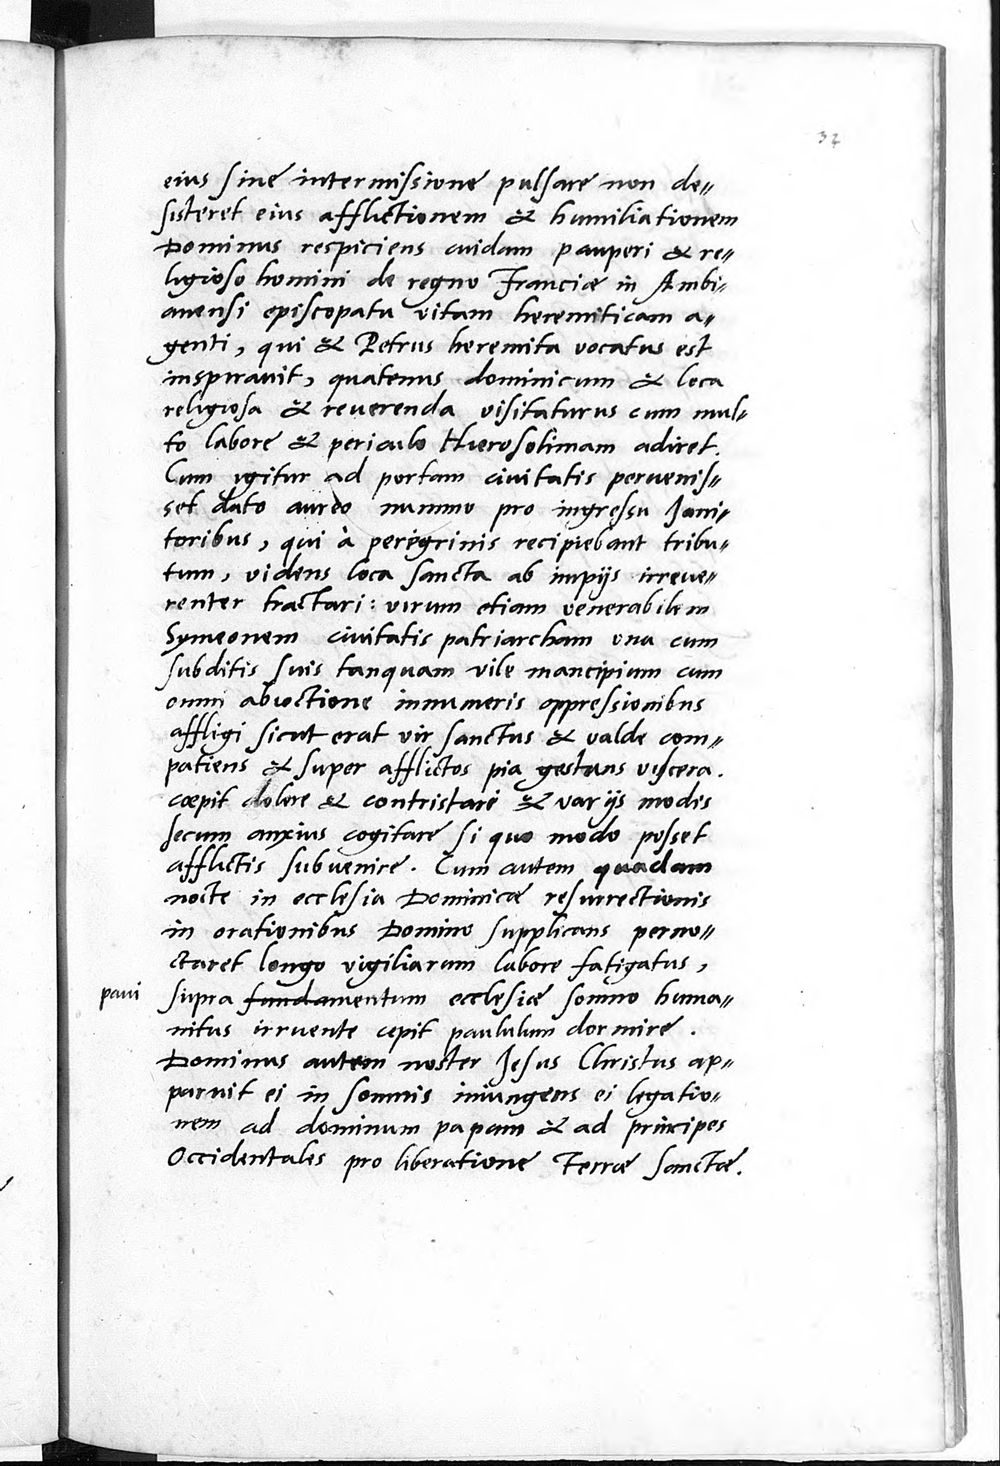 32
eius sine intermissione pulsare non de„
sisteret eius afflictionem & humiliationem
Dominus respiciens cuidam pauperi & re„
ligioso homini de regno Franciæ in Ambi„
anensi episcopatu vitam heremiticam a„
genti, qui & Petrus heremita vocatus est
inspirauit, quatenus dominicum & loca
religiosa & reuerenda visitaturus cum mul„
to labore & periculo Hierosolimam adiret.
Cum igitur ad portam ciuitatis peruenis„
set dato aureo nummo pro ingressu Jani„
toribus, qui à peregrinis recipiebant tribu„
tum, videns loca sancta ab impijs irreue„
renter tractari: virum etiam venerabilem
Symeonem ciuitatis patriarcham vna cum
subditis suis tanquam vile mancipium cum
omni abiectione innumeris oppressionibus
affligi sicut erat vir sanctus & valde com„
patiens & super afflictos pia gestans viscera.
cœpit dolere & contristare & varijs modis
secum anxius cogitare si quo modo posset
afflictis subuenire. Cum autem quadam
nocte in ecclesia Dominicæ resurrectionis
in orationibus Domino supplicans perno„
ctaret longo vigiliarum labore fatigatus,
paui supra fundamentum ecclesiæ somno huma„
nitus irruente cepit paululum dormire.
Dominus autem noster Jesus Christus ap„
paruit ei in somnis iniungens ei legatio„
nem ad dominum papam & ad principes
Occidentales pro liberatione Terræ sanctæ.